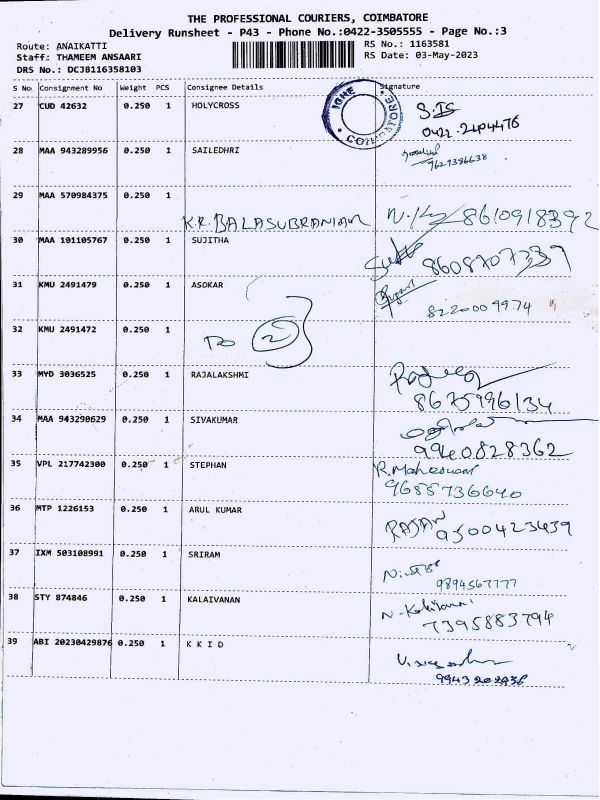 THE PROFESSIONAL COURIERS, COIMBATORE
Delivery Runsheet - P43 - Phone No.:0422-3505555 - Page No.:3
Route: ANAIKATTI RS No.: 1163581
Staff: THAMEEM ANSAARI RS Date: 03-May-2023
DRS No.: DCJB116358103
S No Consignment No Weight PCS Consignee Details Signature
27 CUD 42632 0.250 1 HOLYCROSS
28 MAA 943289956 0.250 1 SAILEDHRI
9629386638
29 MAA 570984375 0.250 1
K.R. BALASUBRANIAN 8610918392
30 MAA 101105767 0.250 1 SUJITHA
8608707339
31 KMU 2491479 0.250 1 ASOKAR
8220009974
32 KMU 2491472 0.250 1
2
33 MYD 3036525 0.250 1 RAJALAKSHMI
8675996134
34 MAA 943290629 0.250 1 SIVAKUMAR
9940828362
35 VPL 217742300 0.250 1 STEPHAN R. Maheswari
9685736640
36 MTP 1226153 0.250 1 ARUL KUMAR RAJAN
9500423439
37 IXM 503108991 0.250 1 SRIRAM
9894567777
38 STY 874846 0.250 1 KALAIVANAN
7395883794
39 ABI 20230429876 0.250 1 K K I D
9943202936